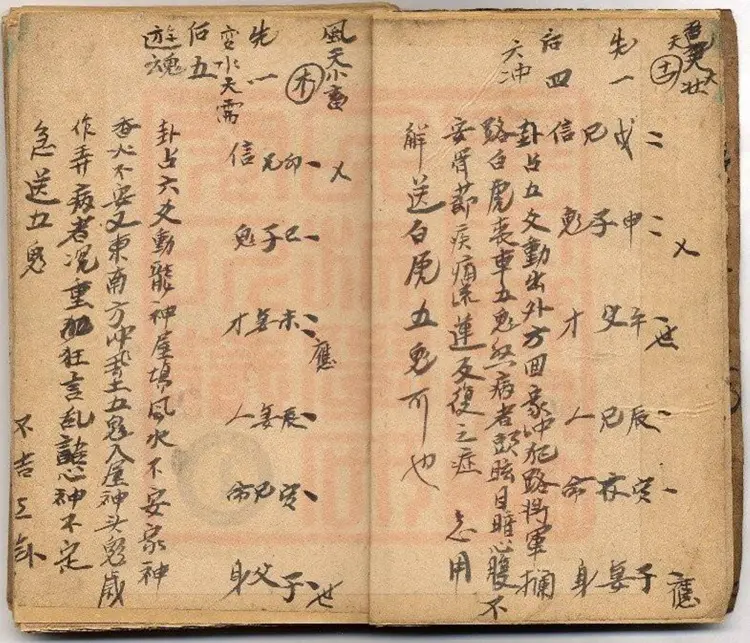 雷天大壮
土
先一
后四
六冲
世 應
戌 申 午 辰 寅 子
兄 子 父 兄 妻
信 鬼 才 人 命 身
卦占五爻動出外方回家冲犯路將軍攔
路白虎喪車五鬼煞病者頭眩目暗心腹不
安骨節疾痛流連反復之症 急用
解送白虎五鬼可也
風天小畜
木
先一
变水天需
后五
遊魂
應 世
卯 巳 未 辰 寅 子
兄 子 妻 妻 兄 父
信 鬼 才 人 命 身
卦占六爻動龍神屋塲風水不安家神
香火不安又東南方冲土五鬼入屋神头鬼歲
作弄病者况重狂言乱語心神不定
急送五鬼
不吉之卦